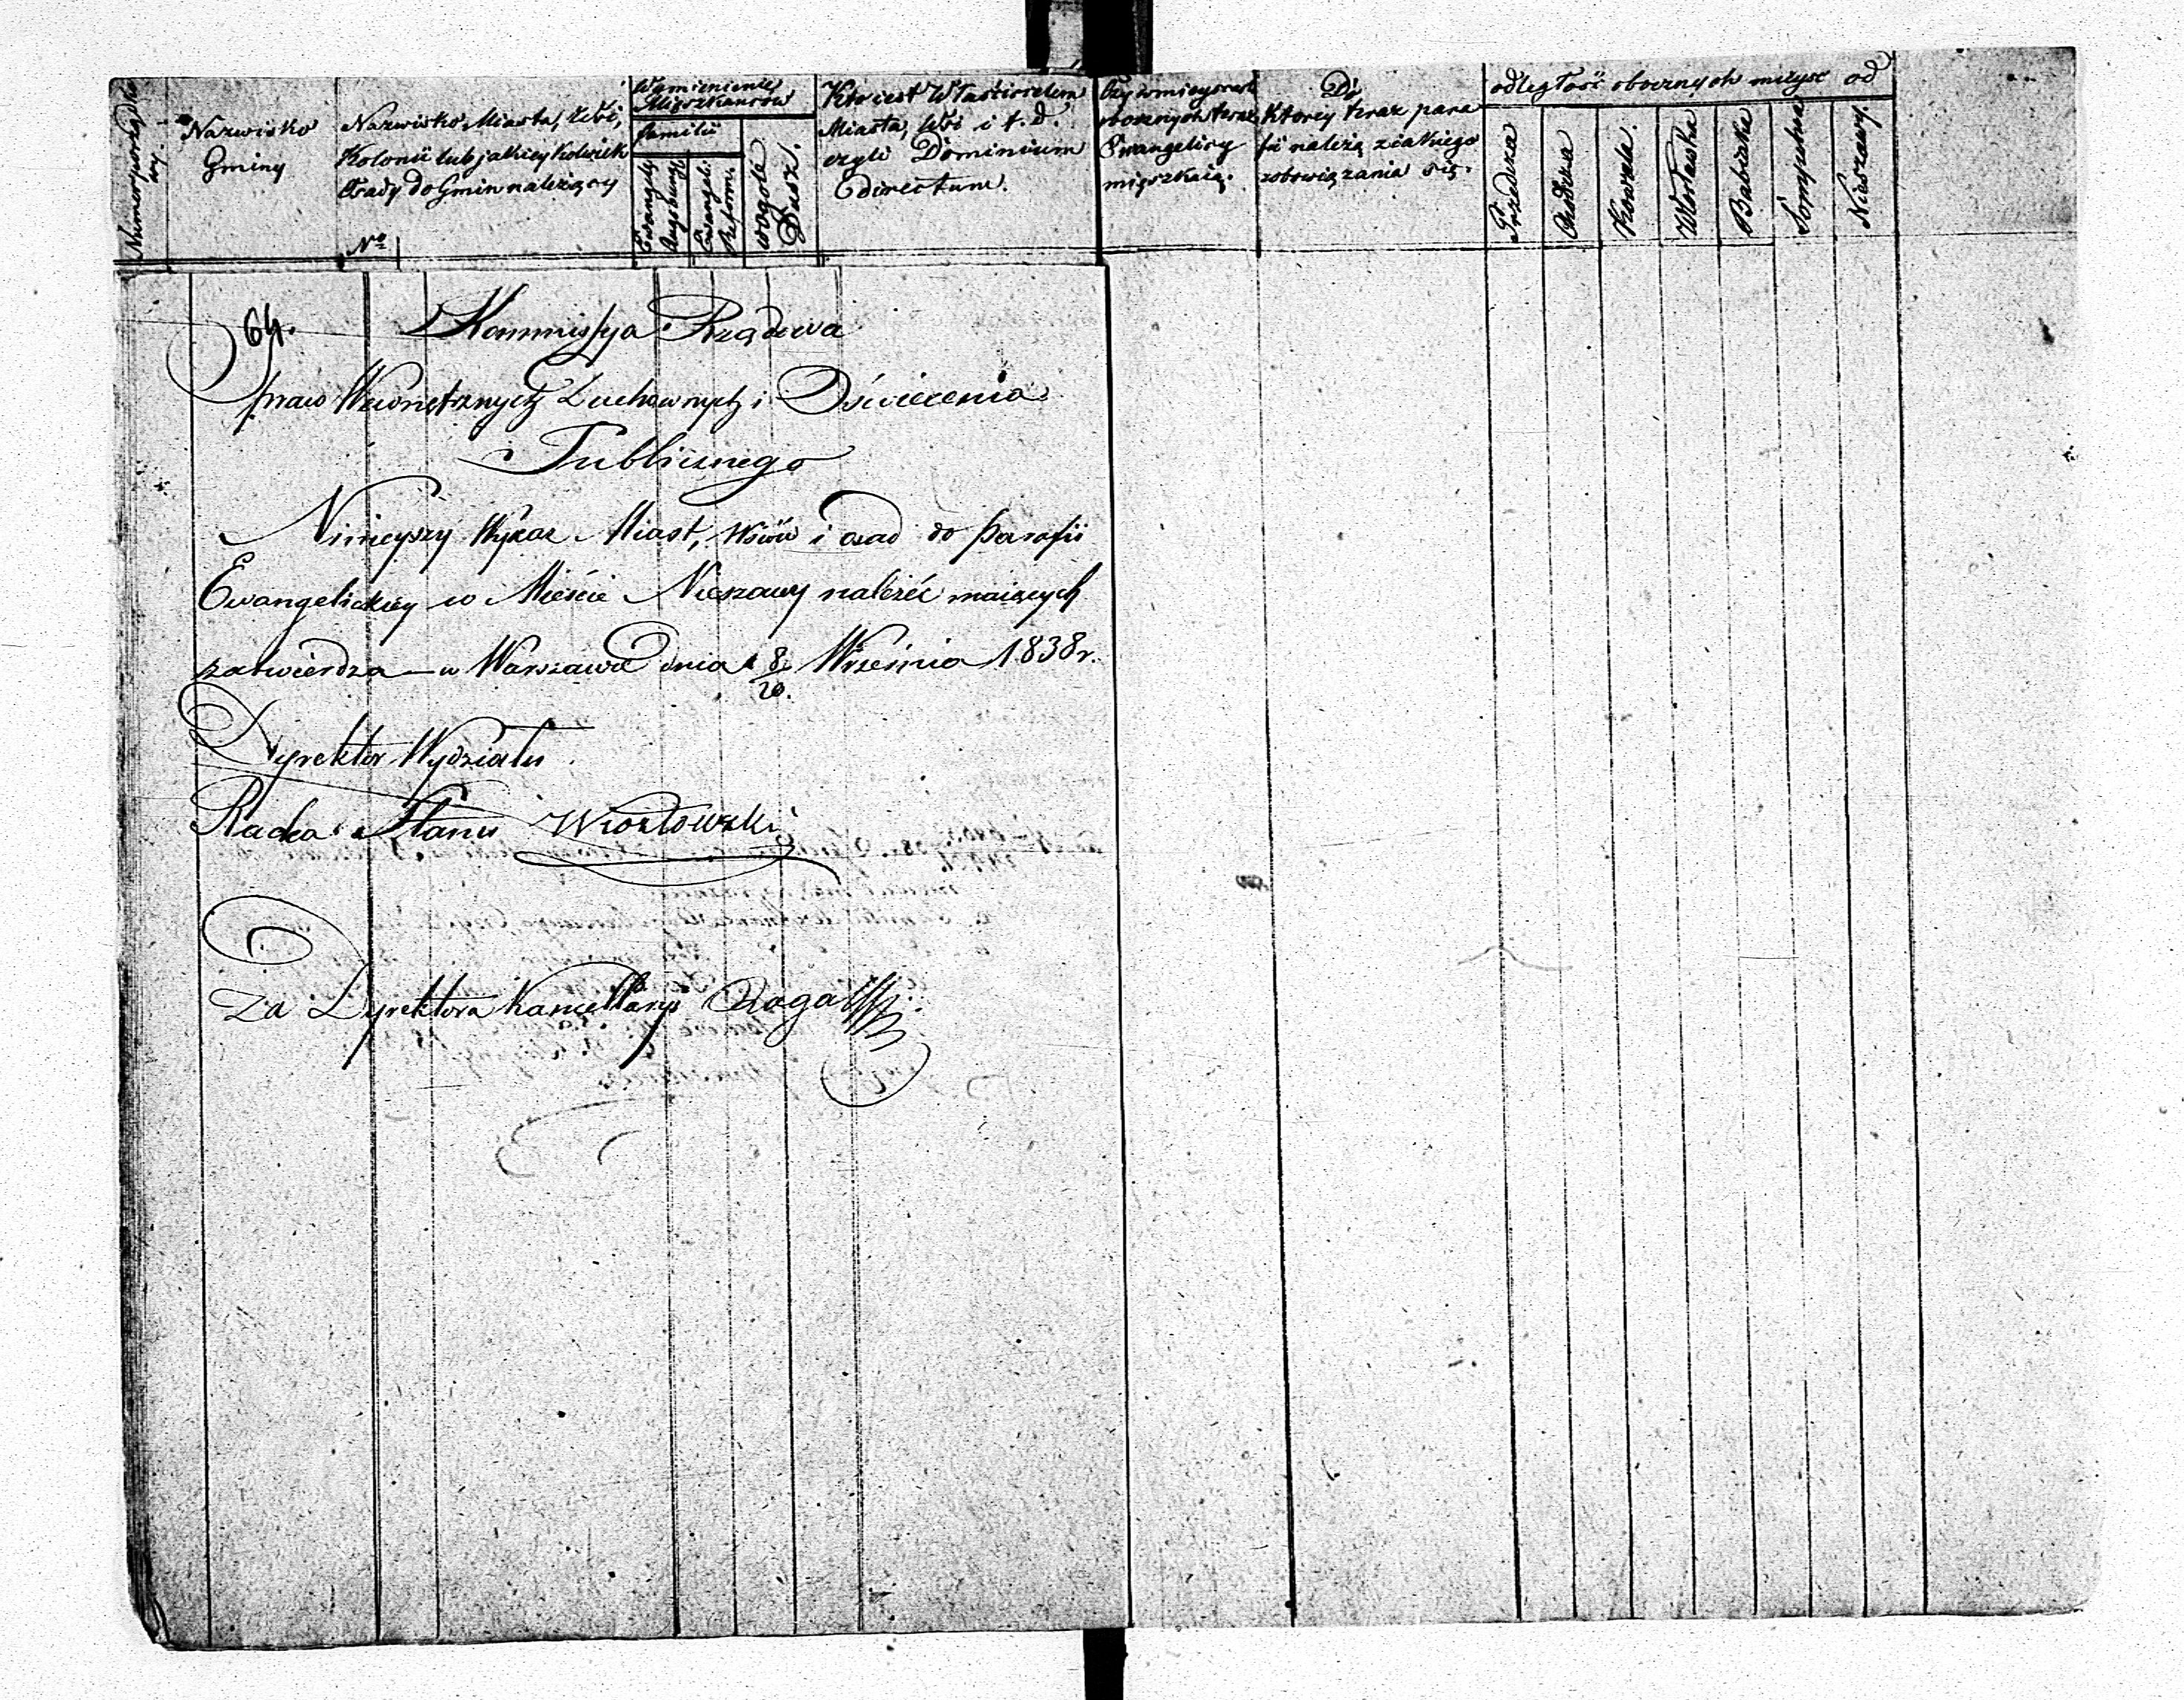 Numer porządko
wy.
Nazwisko
Gminy
Nazwisko Miasta, Wsi,
Kolonii lub jakiey kolwiek
Osady do Gmin należący
No
Wymienienie
Mieszkańców
familii
Ewangely
Augsburg.
Ewangeli.
Reform.
wogóle
Dusz.
Kto iest Właścicielem
Miasta, Wsi i t. d.
czyli Dominium
directum.
Czy w mieyscach
obocznych teraz
Ewangelicy
mieszkaią.
Do
którey teraz para
fii należą z iakiego
zobowiązania się.
odległość obocznych mieysc od
Przedecza
Chodcza
Kowala.
Włocławka
Babiaka
Sompolna
Nieszawy.
64.
Kommissya Rządowa
Spraw Wewnętrznych Duchownych i Oświecenia
Publicznego
Ninieyszy Wykaz Miast, Wsiów i osad do Parafii
Ewangelickiey w Mieście Nieszawy należeć maiących
zatwierdza – w Warszawie dnia 8/20. Września 1838 r.
Dyrektor Wydziału
Radca Stanu
Za Dyrektora Kancellaryi